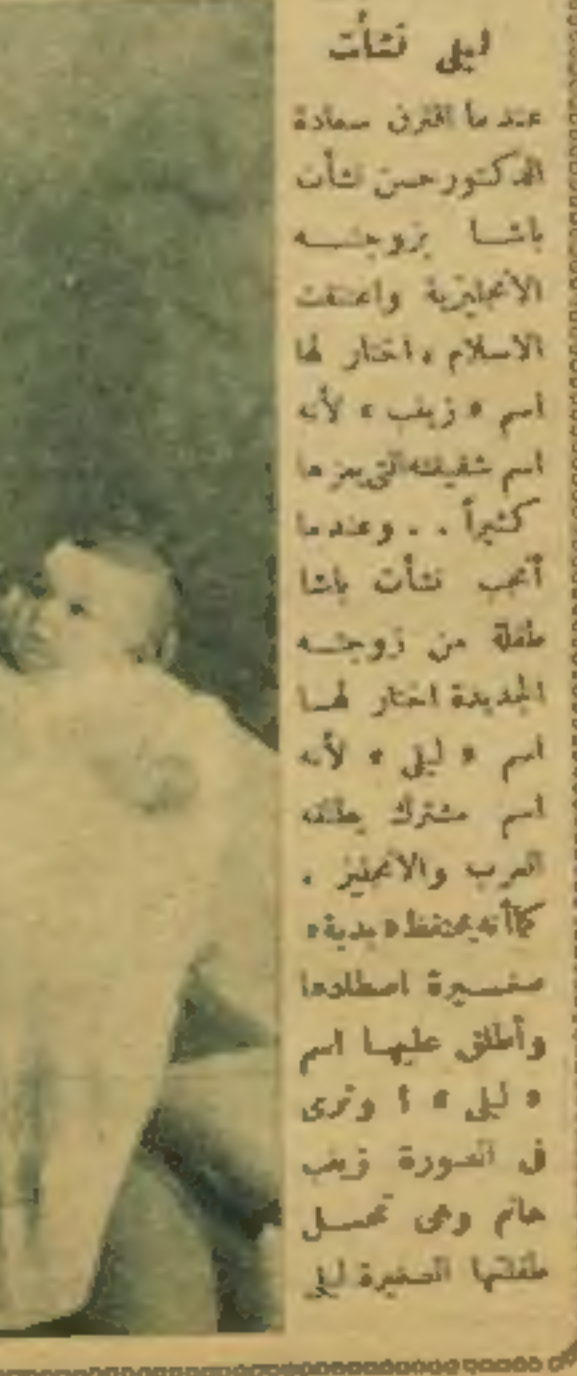 ليلى نشأت
عندما اقترن سعادة
الدكتور حسن نشأت
باشا بزوجته
الانجليزية واعتنقت
الاسلام ، اختار لها
اسم « زينب » لأنه
اسم شقيقته التي يعزها
كثيراً . . وعندما
أنجب نشأت باشا
طفلة من زوجته
الجديدة اختار لها
اسم « ليلى » لأنه
اسم مشترك يطلقه
العرب والانجليز .
كما أنه يحتفظ «
صغيرة اصطادها
وأطلق عليها اسم
« ليلى » ! وترى
في الصورة زينب
هانم وهي تحمل
طفلتها الصغيرة ليلى